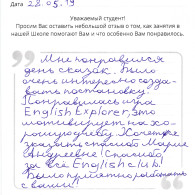 Дата 28.05.19
Уважаемый студент!
Просим Вас оставить небольшой отзыв о том, как занятия в
нашей Школе помогают Вам и что особенно Вам понравилось.
Мне понравился
день сказок. Было
очень интересно созда-
вать постановку.
Понравилась игра
English Explorer, это
мотивирует на хо-
рошую учебу. Хочется
сказать спасибо Марии
Андреевне! Спасибо
за все English club!
Было приятно работать
с вами!